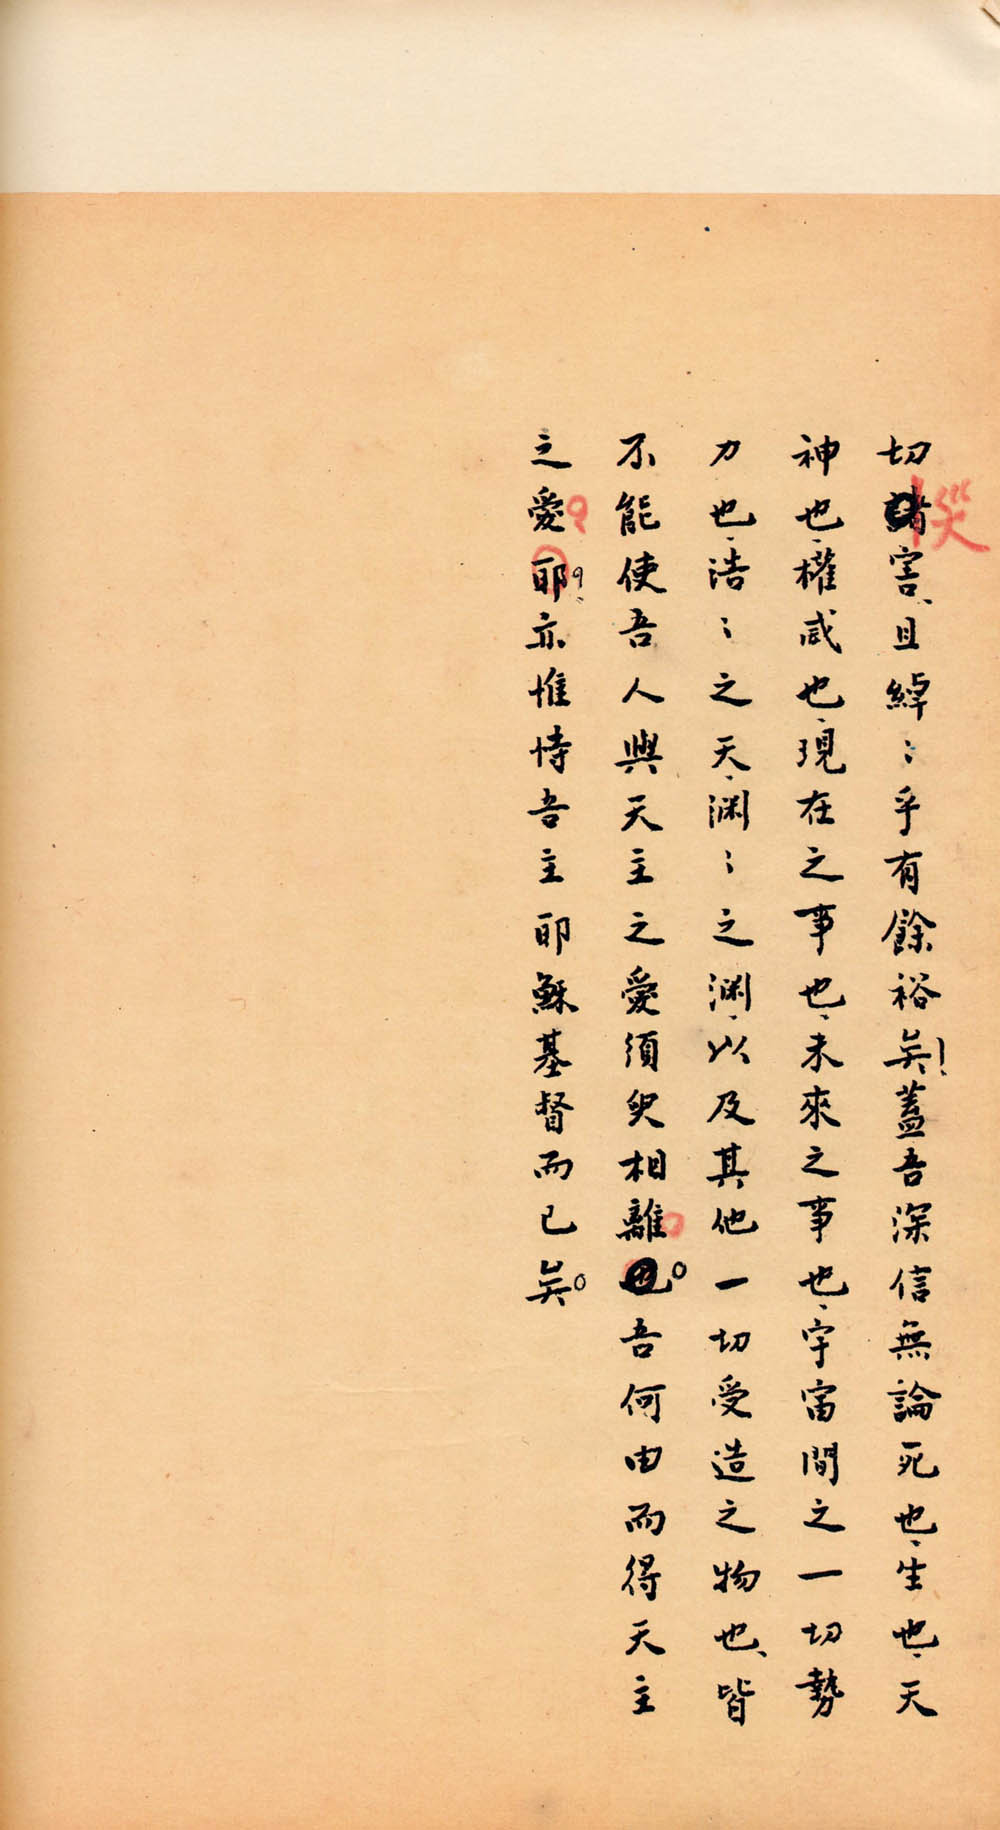 切諸災害、且綽〻乎有餘裕矣！蓋吾深信無論死也、生也、天
神也、權威也、現在之事也、未來之事也、宇宙間之一切勢
力也、浩〻之天、淵〻之淵、以及其他一切受造之物也、皆
不能使吾人與天主之愛須臾相離也。吾何由而得天主
之愛耶？亦惟恃吾主耶穌基督而已矣。